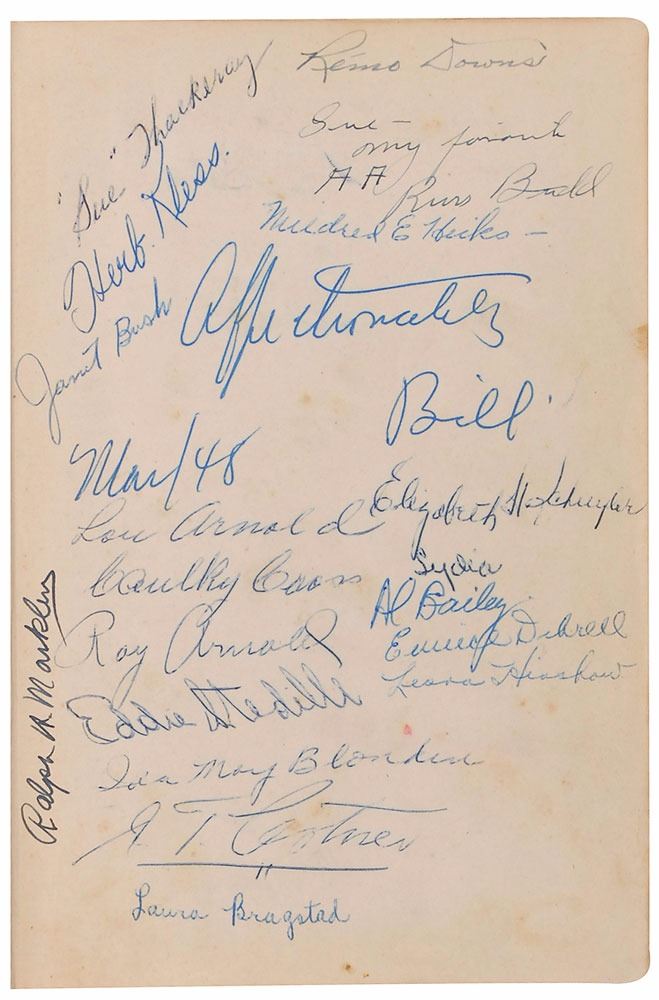 Remo Downs
"Sue" Thackeray
Sue –
my favorite
AA
Budd
Herb. Hess.
Mildred E Hicks –
Janet Bush
Affectionately
Bill.
Mar/48
Elizabeth H. Schuyler
Lou Arnold
Lydia
Caulky Coons
Al Bailey
Roy Arnold
Eunice Dibrell
Leora Hinshaw
Ralph W Marklin
Eddie
Ida May Blonden
T.
Laura Bragstad